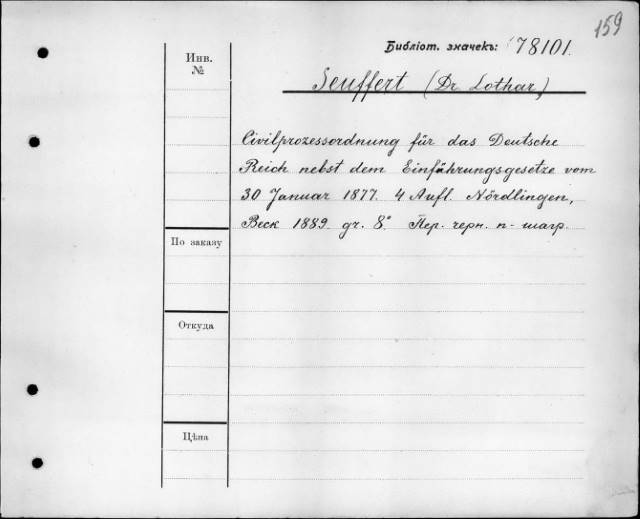 159
Библіот. значекъ: 78101.
Инв.
№
Seuffert (Dr Lothar)
Civilprozessordnung für das Deutsche
Reich nebst dem Einführungsgesetze vom
30 Januar 1877. 4 Aufl. Nördlingen,
Beck 1889. gr. 8° Пер. черн. п-шагр.
По заказу
Откуда
Цѣна